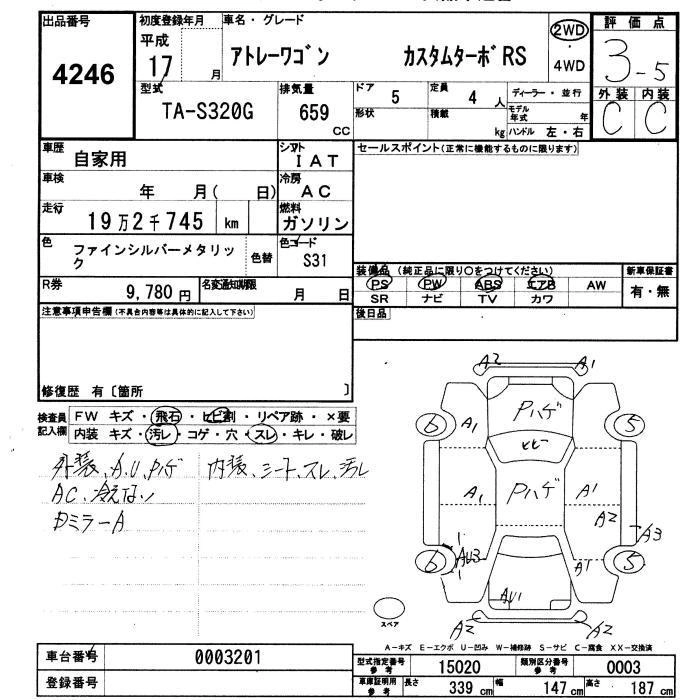 出品番号 初度登録年月 車名・グレード 評価点
4246 平成 17 月 アトレーワゴン カスタムターボRS 2WD・4WD 3-5
型式 排気量 ドア 定員 ディーラー・並行 外装 内装
TA-S320G 659 CC 5 4 人 モデル年式 年 C C
形状 積載 kg ハンドル 左・右
車歴 自家用 シフト IAT セールスポイント(正常に機能するものに限ります)
車検 年 月( 日) 冷房 AC
走行 19万2千745 km 燃料 ガソリン
色 ファインシルバーメタリック 色替 色コード S31
装備品 (純正品に限り○をつけてください) 新車保証書
R券 9,780円 名変通知期限 月 日 PS PW ABS エアB AW 有・無
SR ナビ TV カワ
注意事項申告欄(不具合内容等は具体的に記入して下さい) 後日品
修復歴 有〔箇所 〕
検査員記入欄 FW キズ・飛石・ヒビ割・リペア跡・×要
内装 キズ・汚レ・コゲ・穴・スレ・キレ・破レ
外装、A、U、Pハゲ 内装、シート、スレ、汚レ
AC、冷えない
Dミラー A
A2 A1
Pハゲ
6 A1 5
ヒビ
A1 Pハゲ A1
A2
A3
6 AU3 A1 5
AU1
A2 A2
スペア
A-キズ E-エクボ U-凹み W-補修跡 S-サビ C-腐食 XX-交換済
車台番号 0003201 型式指定番号 参考 15020 類別区分番号 参考 0003
登録番号 車庫証明用 参考 長さ 339 cm 幅 147 cm 高さ 187 cm